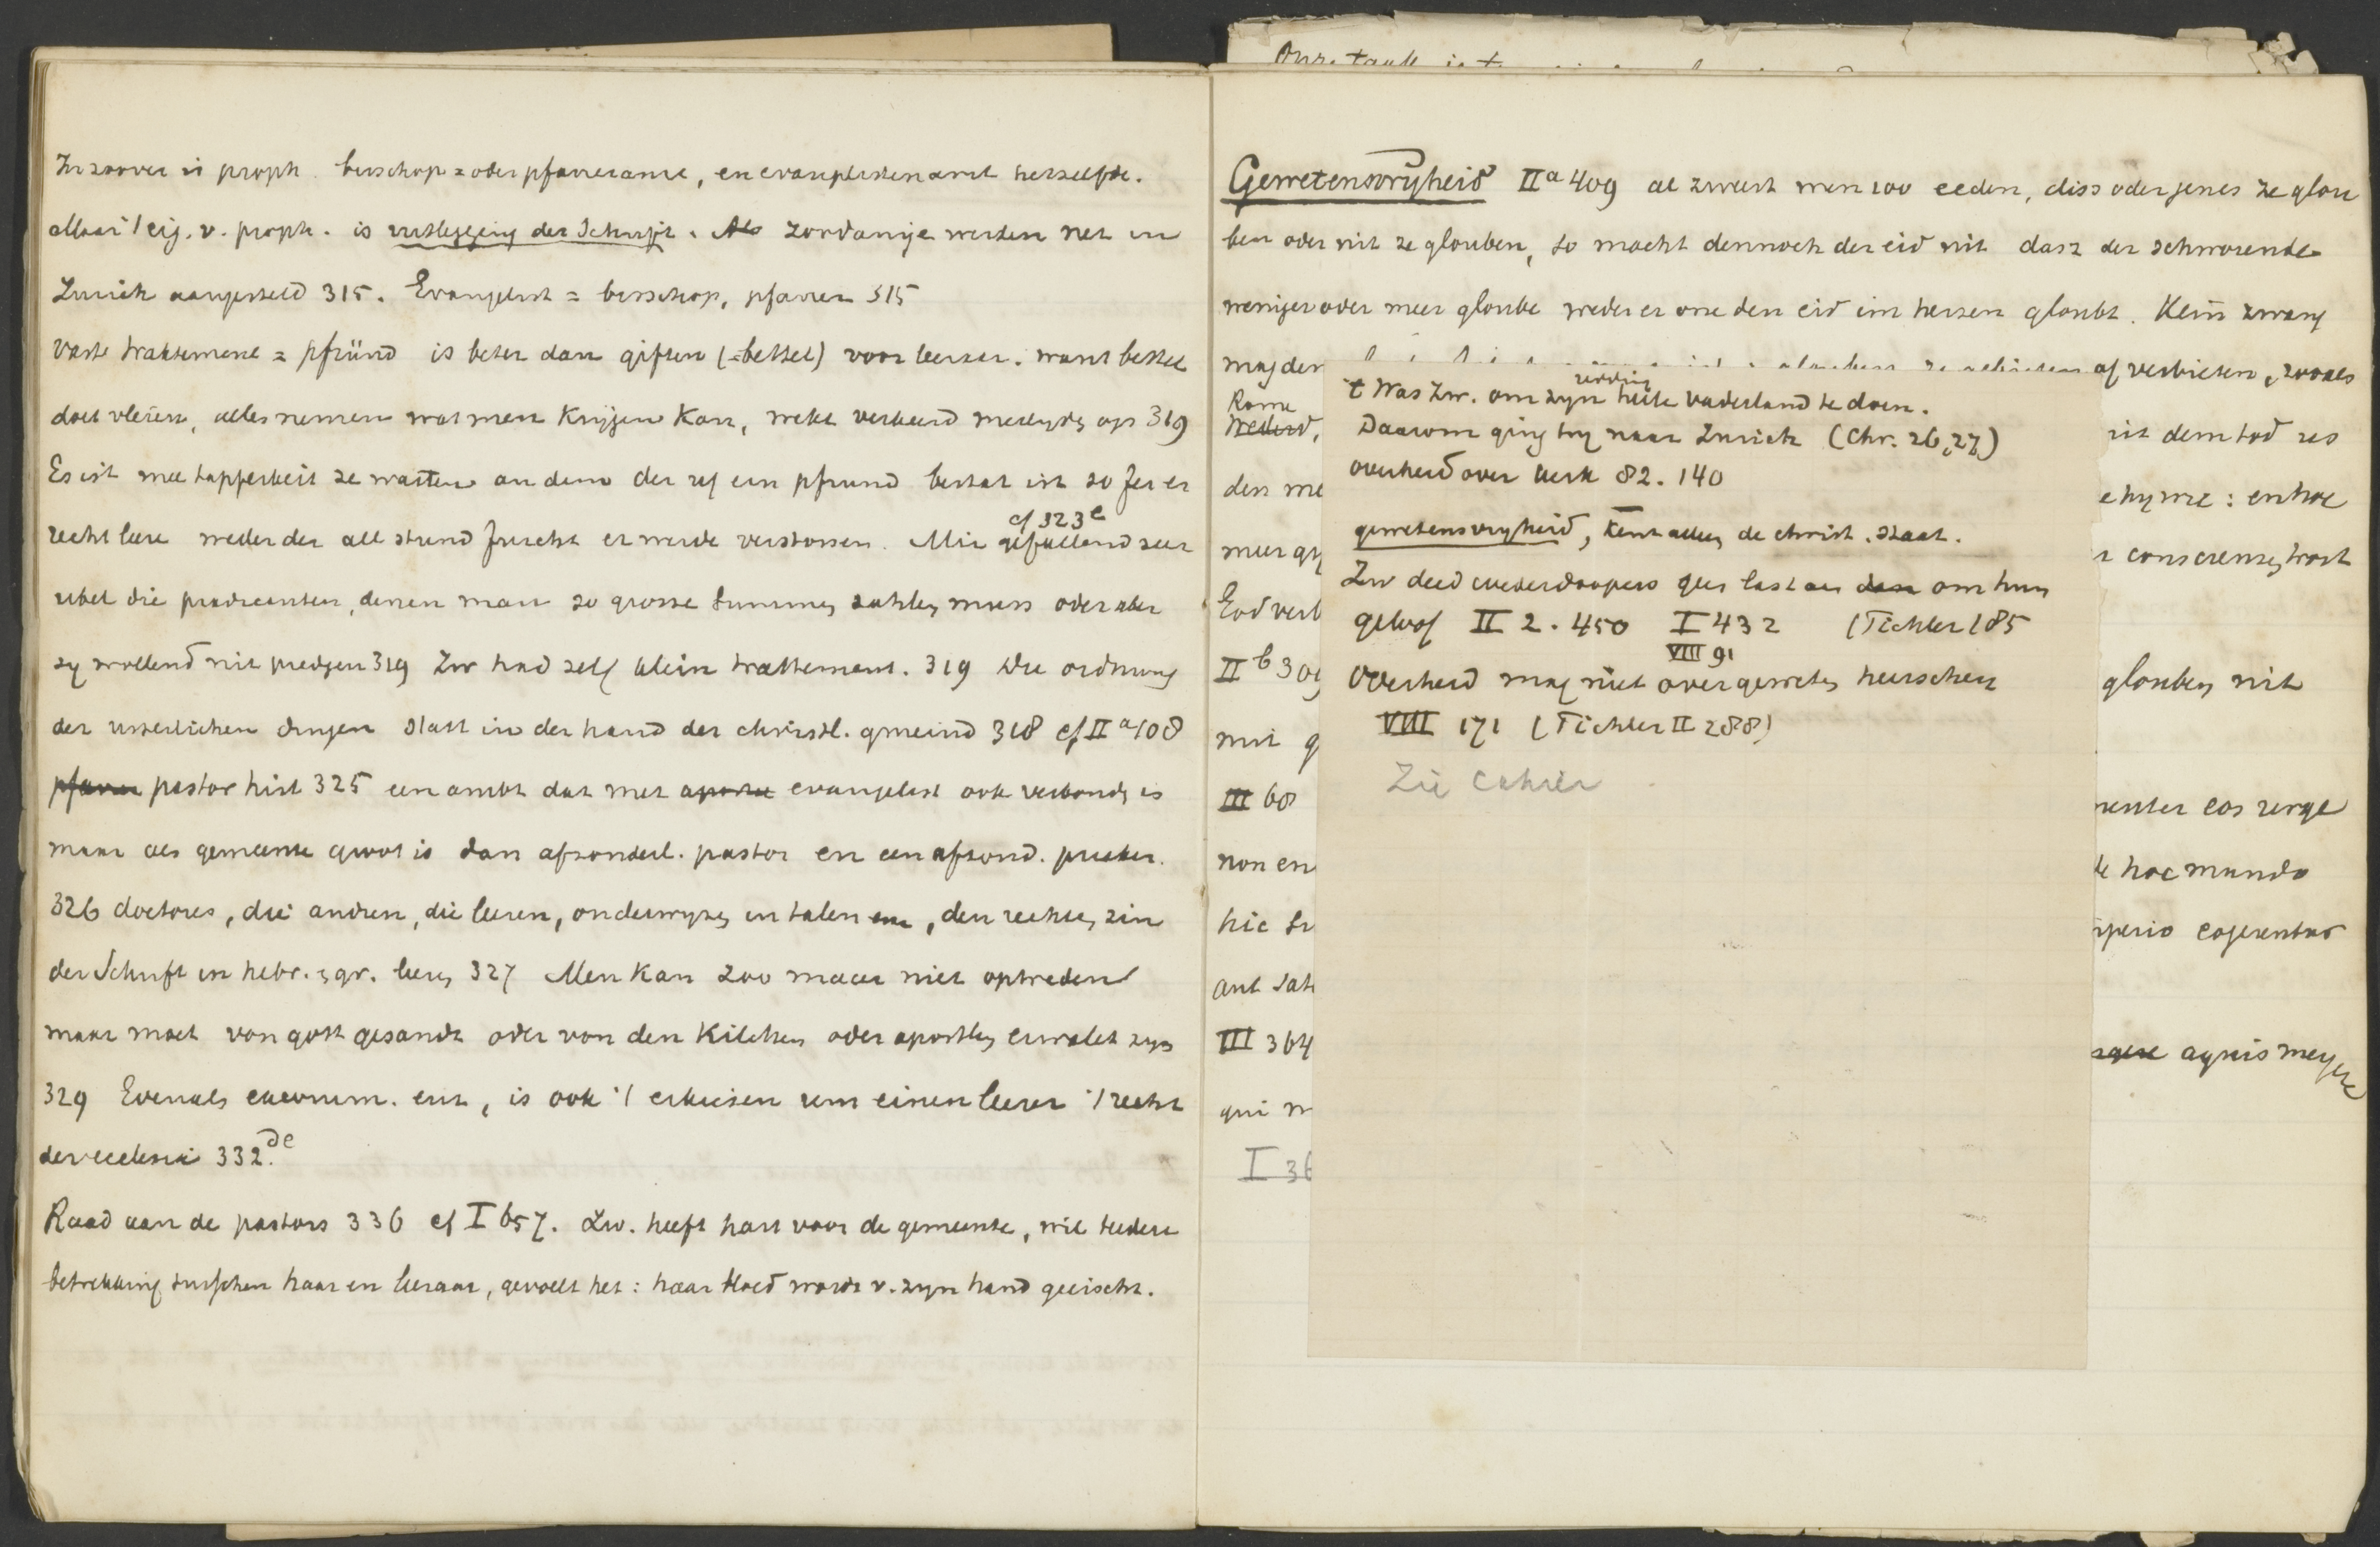 In zoover is proph. bisschop = oder pfarreramt, en evangelistenamt hetzelfde.
Maar 't eig. v. proph. is uitlegging der Schrift. Als zoodanige werden net in
Zurich aangesteld 315. Evangelist = bisschop, pfarrer 315
Vaste traktement = pfründ is beter dan giften (=bettel) voor leeraar. want bettel
doet vleien, alles nemen wat men krijgen kan, wekt verkeerd medelyden op 319
Es ist mee tapferkeit ze warten an dem der uf ein pfrund bestat ist so fer er
recht leere weder der all stund furcht er werde verstossen. Mir gefallend seer
cf 323 e
ubel die predicanten, denen man so grosse summen zahlen muss oder aber
sy wollend nit predgen 319 Zw had zelf klein traktement. 319 Die ordnung
der usserlichen dingen statt in der hand der christl. gmeind 318 cf II a 108
pfarrer pastor hist 325 een ambt dat met apostel evangelist ook verbonden is
maar als gemeente groot is dan afzonderl. pastor en een afzond. prediker.
326 doctores, die andren, die leeren, onderwyzen in talen en, den rechten zin
der Schrift in hebr. en gr. leeren 327 Men kan zoo maar niet optreden
maar moet von gott gesandt oder von den Kilchen oder apostlen erwälet zyn
329 Evenals excomm. enz, is ook 't erkiesen um einen leerer 't recht
der ecclesia 332 de.
Raad aan de pastors 336 cf I 657. Zw. heeft hart voor de gemeente, wil teedere
betrekking tusschen haar en leeraar, gevoelt het: haar bloed wordt v. zyn hand geëischt.
Onze taak is t
Gewetensvryheid II a 409 al zweert men 100 eeden, diss oder jenes ze glou
ben oder nit ze glouben, so macht dennoch der eid nit dasz der schwörende
weniger oder meer gloube weder er one den eid im herzen gloubt. Kein zwang
mag der of verbieten, zooals
Rome
Wederd,
uit dem tod us
den me
meer gr
r conscienzen trost
God verb
II b 309
glouben nit
mit g
III 60
menter eos urge
non en
hoc mundo
hic
imperio cogerentur
aut
III 364
agnis
qui
I 36
't Was Zw. om redding zyn heele vaderland te doen.
Daarom ging hy naar Zurich (Chr. 26, 27)
overheid over kerk 82. 140
gewetensvryheid, kent alleen de christ. staat.
Zw deed wederdoopers geen last aan dan om hun
geloof II 2. 450 I 432 (Tichler 185
VIII 91
Overheid mag niet over geweten heerschen
VIII 171 (Tichler II 288)
Zie cahier